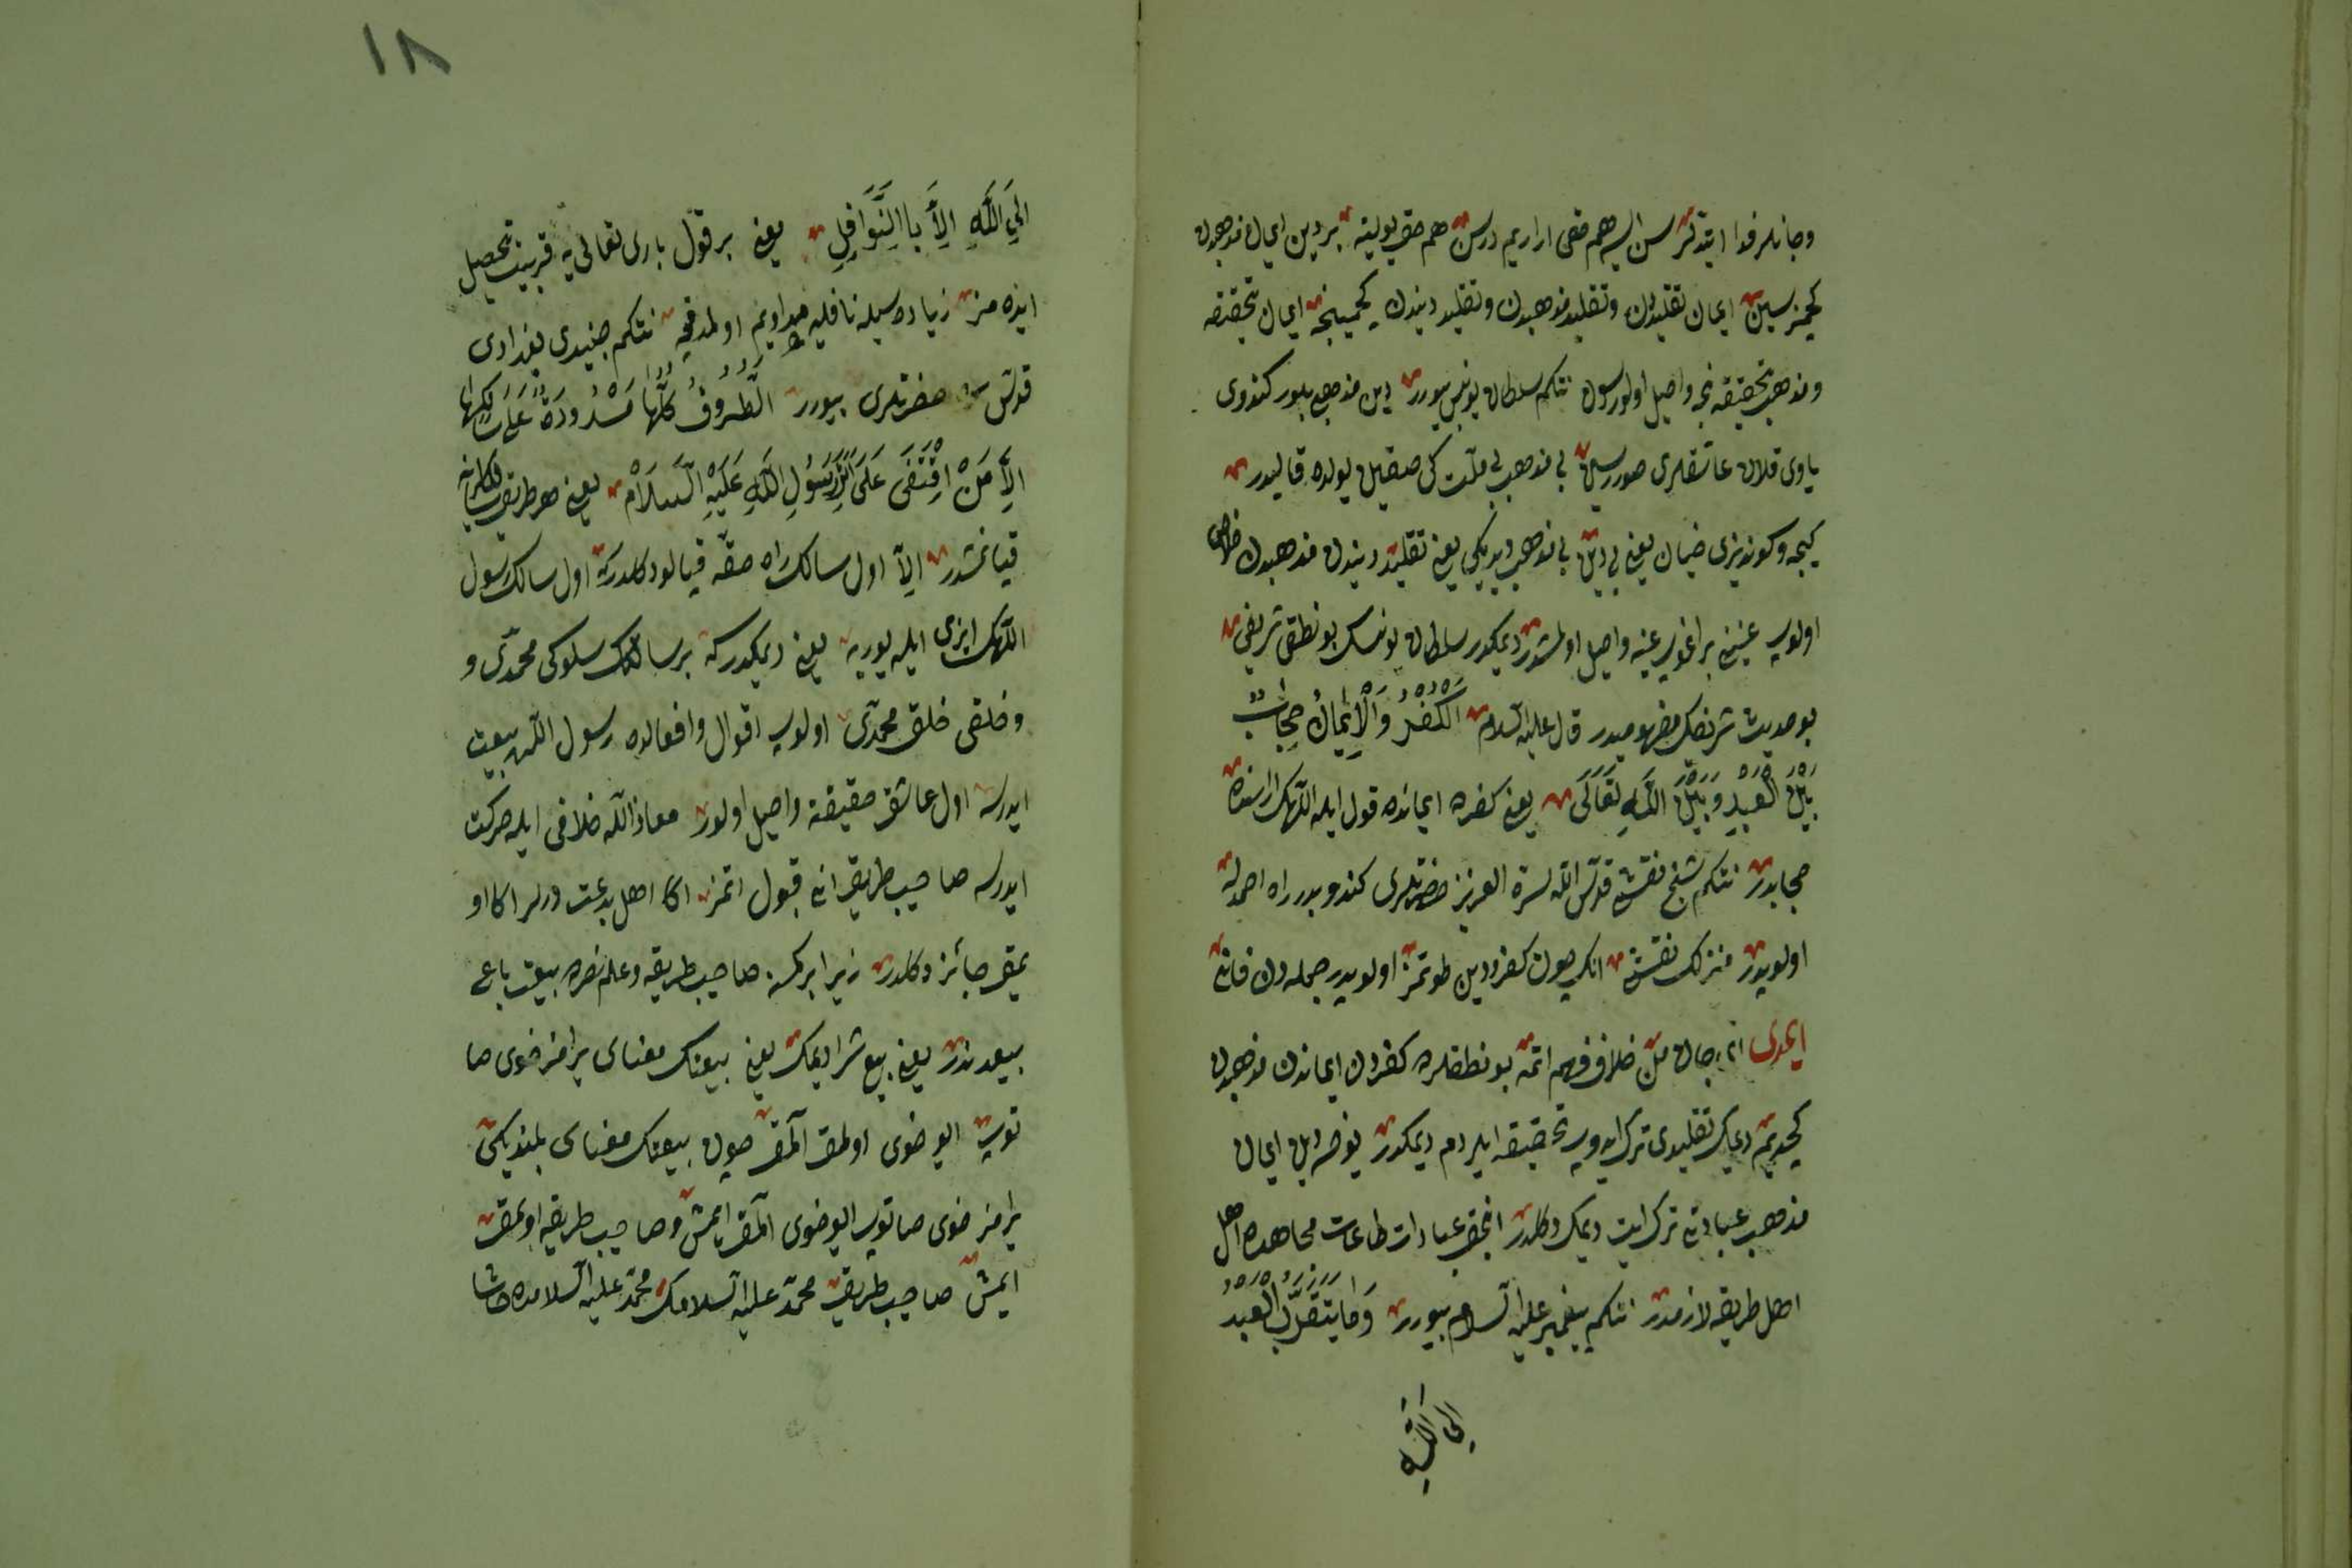 وجانلر فدا ایتدلر سن ایسه هم حقی ارارم درسن هم حق یولینه بر دین ایمان مذهبدن
کچمزسین ایمان تقلیددن وتقلید مذهبدن وتقلید دیندن کچمینجه ایمان تحقیقه
ومذهب تحقیقه نجه واصل اولورسون نتکم سلطان یونس بیورر دین مذهبی بیلور کندوی
یاوی قلان عاشقلری صوررسین بی مذهب بی ملت کلی یولده قالیدر
کیجه وکوندیزی یعنی بی دین بی مذهب دیدیکی یعنی تقلید دیندن مذهبدن خلاص
اولوب عینینی براغوب عینه واصل اولمشدر دیمکدر سلطان یونسک بو نطق شریفی
بو حدیث شریفک مفهومیدر قال علیه السلام اَلْکُفْرُ وَالْاِیْمَانُ حِجَابٌ
بَیْنَ الْعَبْدِ وَبَیْنَ اللّٰهِ تَعَالَی یعنی کفرده ایمانده قول ایله اللهک اراسنده
حجابدر نتکم شیخ نقشی قدس الله سره العزیز حضرتلری کندو بیورر راه احمدله
اولوبدر منزلک نقشی انک چون کفر ودین طوتمز اولوبدر جمله دن فانی
ایمدی ای جان من خلاف فهم اتمه بو نطقلره کفردن ایماندن مذهبدن
کچدیم دیمک تقلیدی ترک ایدوب تحقیقه ایردم دیمکدر یوخسه دین ایمان
مذهب عبادتی ترک ایت دیمک دکلدر انجق عبادات طاعات مجاهده اهل
اهل طریقه لازمدر نتکم پیغمبر علیه السلام بیورر وَمَا یَتَقَرَّبُ الْعَبْدُ
اِلَی اللّٰهِ
۱۸
اِلَی اللّٰهِ اِلَّا بِاالنَّوَافِلِ یعنی بر قول باری تعالی یه قربیت تحصیل
ایده مز زیاده سیله نافلیه مداویم اولمدقجه نتکم جنیدی بغدادی
قدس سره حضرتلری بیورر اَلطُّرُوقُ کُلُّهَا مَسْدُودَةٌ عَلَی سَالِکِهَا
اِلَّا مَنْ اِقْتَفَی عَلَی اَثَرِ رَسُولِ اللّٰهِ عَلَیْهِ السَّلَامْ یعنی هر طریق سالکلرینه
قپانمشدر الا اول سالک راه حقه قپالو دکلدر که اول سالک رسول
اللهک ایزی ایله یوریه یعنی دیمکدر که بر سالکک سلوکی محمدی و
وخلقی خلق محمدی اولوب اقوال وافعالده رسول اللهه بیعت
ایدرسه اول عاشق حقیقته واصل اولور معاذ الله خلافی ایله حرکت
ایدرسه صاحب طریق انی قبول اتمز اکا اهل بدعت درلر اکا او
یمق جائز دکلدر زیرا بر کسه صاحب طریقه وعلم نصره بیعت باعی
بیعدندر یعنی بیع شرا دیمک یعنی بیعتک معناسی یرامز خوی صا
توب ایو خوی اولمق المق چون بیعتک معناسی بلندیکی
یرامز خوی صاتوب ایو خوی المق ایمش وصاحب طریقه اویمق
ایمش صاحب طریق محمد علیه السلامک محمد علیه السلامده حاشا